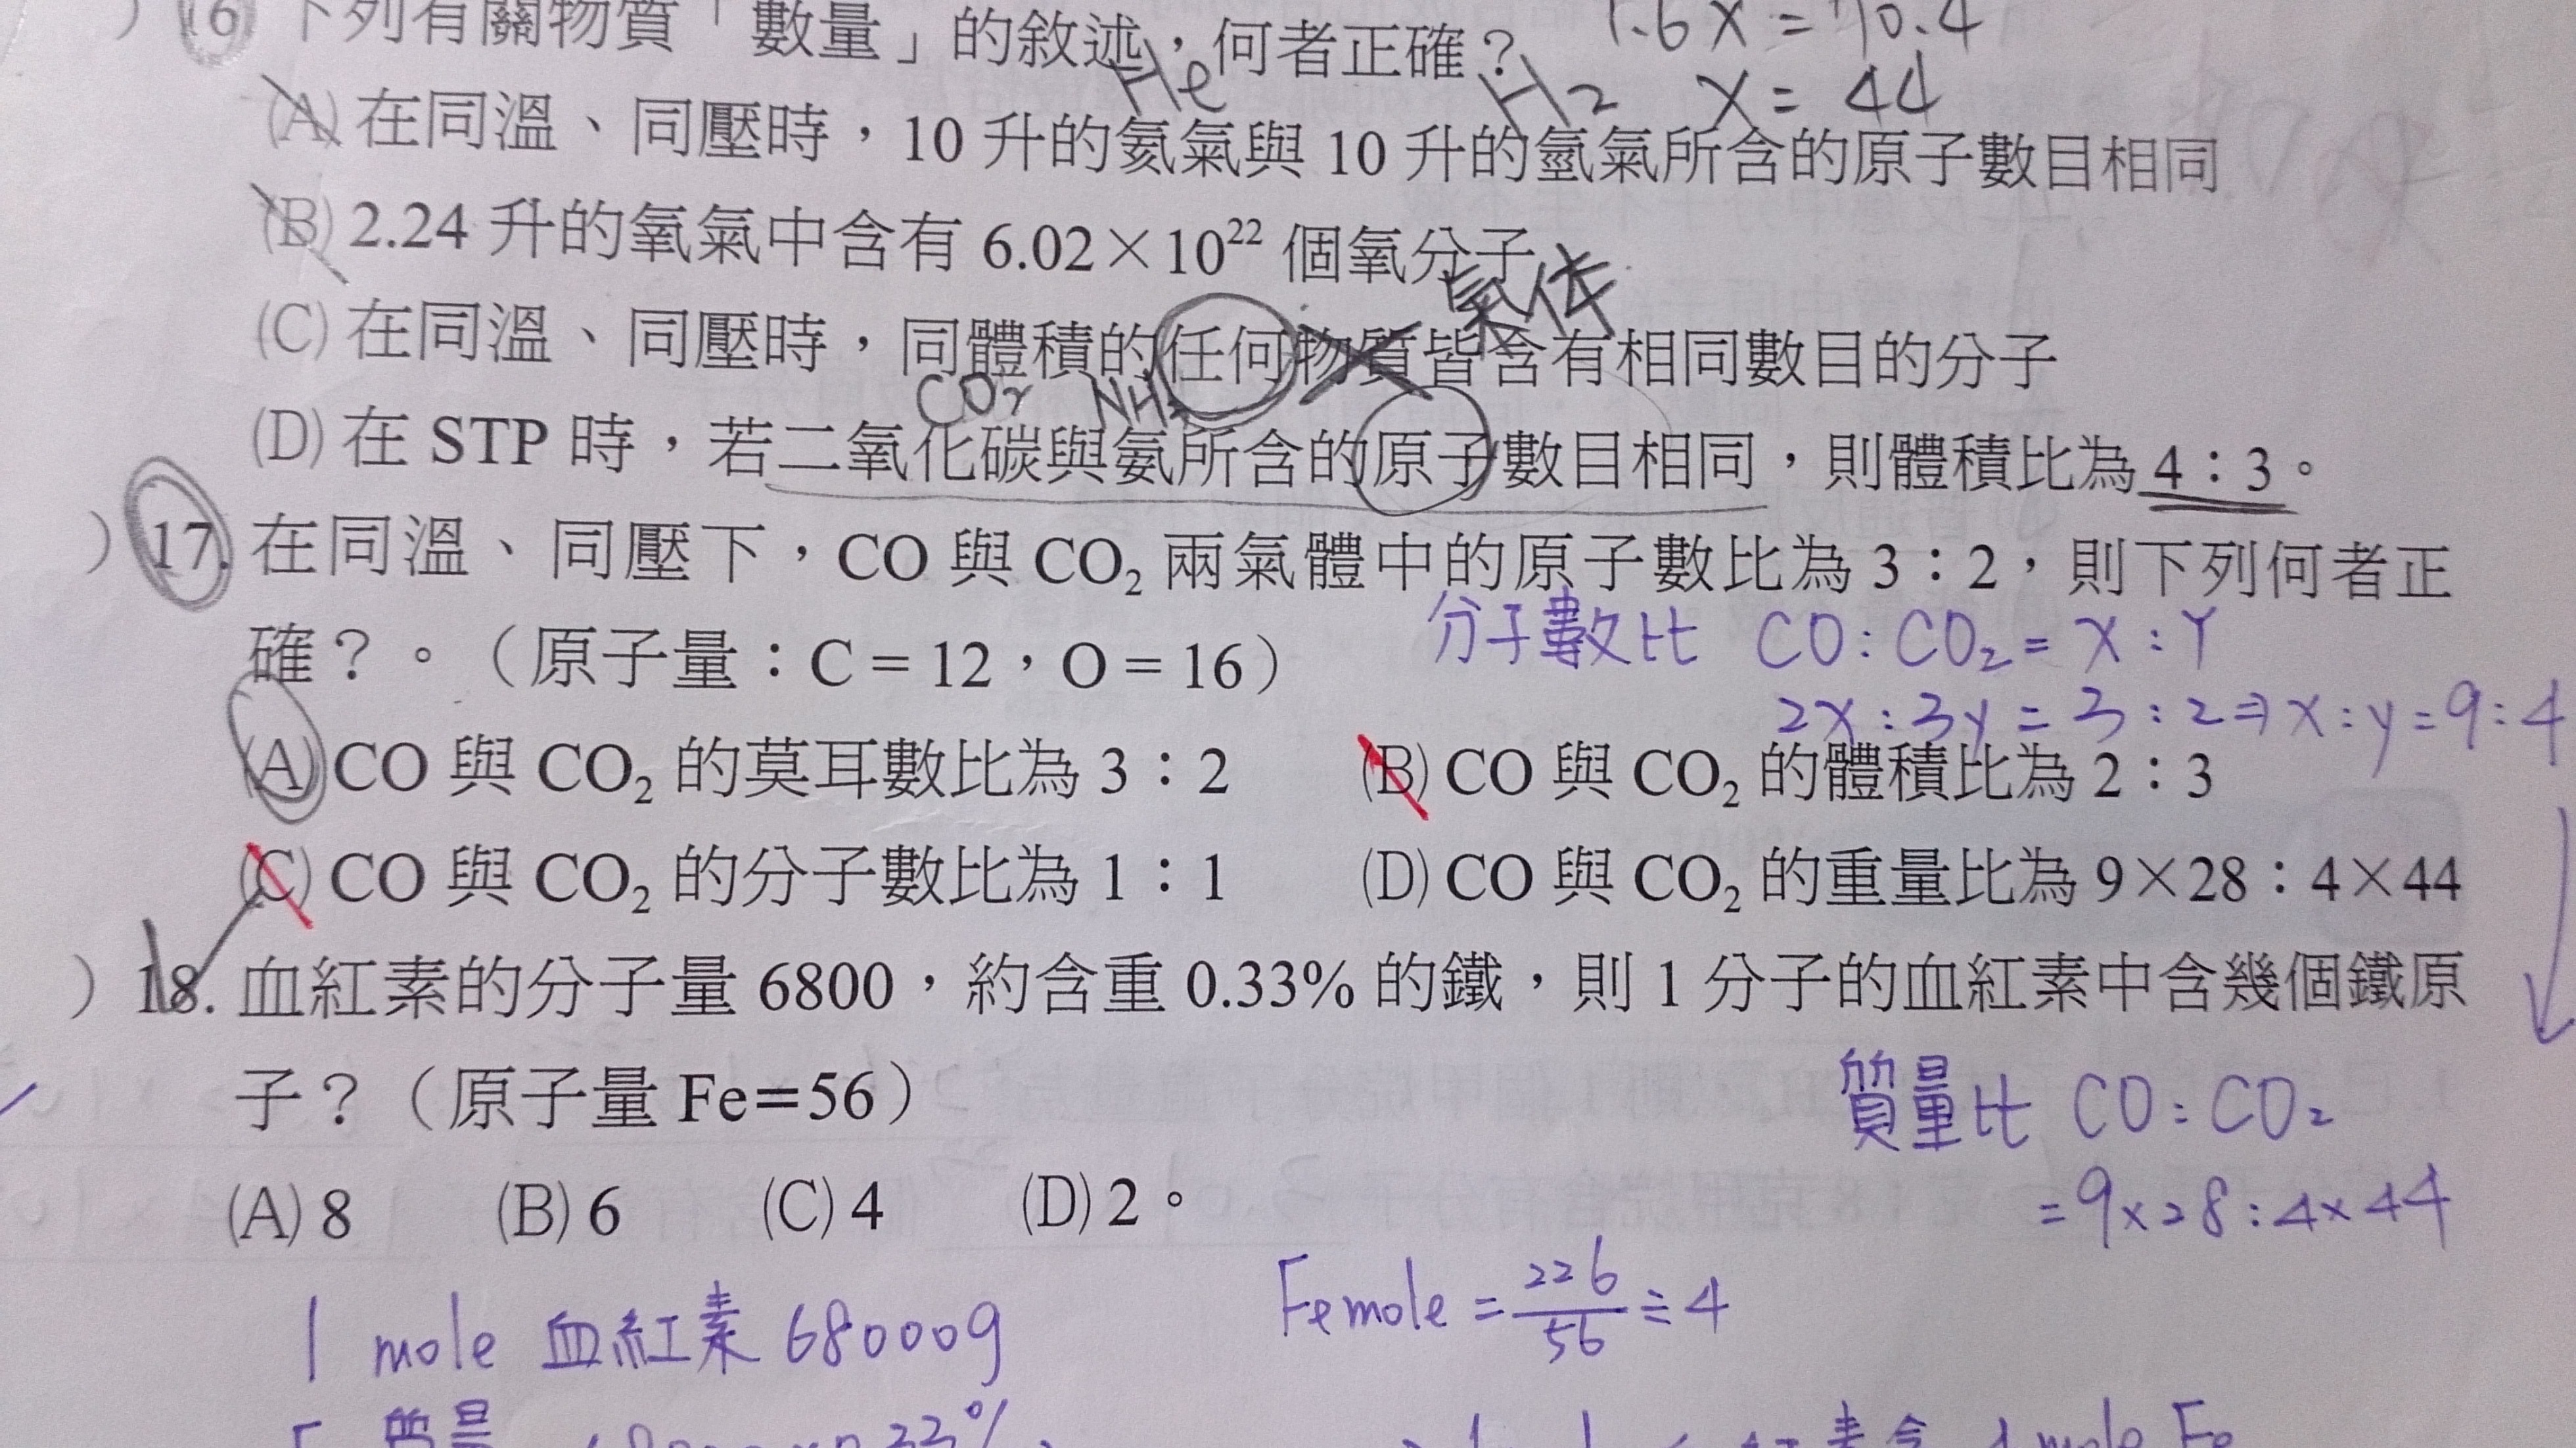 ) 16 下列有關物質「數量」的敘述，何者正確？
1.6X = 70.4
He H2 X = 44
(A) 在同溫、同壓時，10 升的氦氣與 10 升的氫氣所含的原子數目相同
(B) 2.24 升的氧氣中含有 6.02×10²² 個氧分子
氣体
(C) 在同溫、同壓時，同體積的任何物質皆含有相同數目的分子
CO₂ NH₃
(D) 在 STP 時，若二氧化碳與氨所含的原子數目相同，則體積比為 4：3。
) 17. 在同溫、同壓下，CO 與 CO₂ 兩氣體中的原子數比為 3：2，則下列何者正
確？。（原子量：C = 12，O = 16）
分子數比 CO : CO₂ = X : Y
2X : 3y = 3 : 2 ⇒ x : y = 9 : 4
(A) CO 與 CO₂ 的莫耳數比為 3：2 (B) CO 與 CO₂ 的體積比為 2：3
(C) CO 與 CO₂ 的分子數比為 1：1 (D) CO 與 CO₂ 的重量比為 9×28：4×44
) 18. 血紅素的分子量 6800，約含重 0.33% 的鐵，則 1 分子的血紅素中含幾個鐵原
子？（原子量 Fe=56）
質量比 CO : CO₂
= 9×28 : 4×44
(A) 8 (B) 6 (C) 4 (D) 2。
Fe mole = 226/56 ≒ 4
1 mole 血紅素 68000g
質量